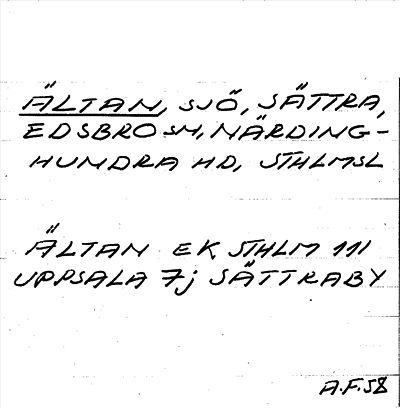 ÄLTAN, SJÖ, SÄTTRA,
EDSBRO SN, NÄRDING-
HUNDRA HD, STHLMSL
ÄLTAN EK STHLM 111
UPPSALA 7j SÄTTRABY
A.F. 58